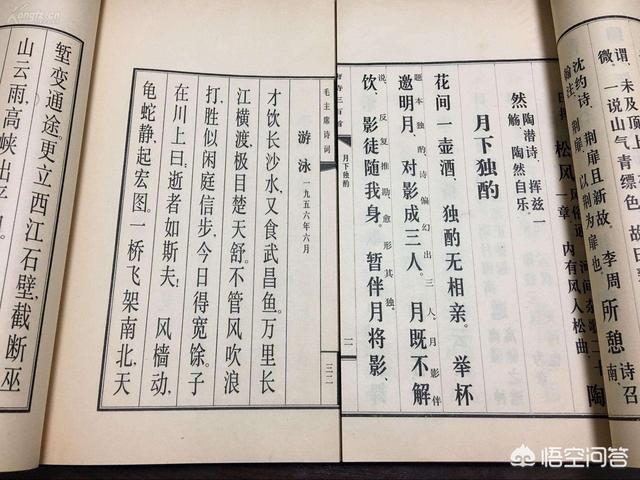 谓,未及顶上
微。一说山气青缥色
沈约诗,荆扉且新故。李周
翰注,荆扉,以荆为扉也。
所憩
诗召
南
松风
一章
内有风入松曲
陶
然
陶潜诗,挥兹一
觞,陶然自乐。
月下独酌
花间一壶酒,独酌无相亲。举杯
邀明月,对影成三人。月既不解
题本独酌,诗偏幻出三人,月影伴
说,反复推勘,愈形其独。
饮,影徒随我身。暂伴月将影,
月下独酌
毛主席诗词
三二
游泳 一九五六年六月
才饮长沙水,又食武昌鱼。万里长
江横渡,极目楚天舒。不管风吹浪
打,胜似闲庭信步,今日得宽馀。子
在川上曰:逝者如斯夫! 风樯动,
龟蛇静,起宏图。一桥飞架南北,天
堑变通途。更立西江石壁,截断巫
山云雨,高峡出平
悟空问答